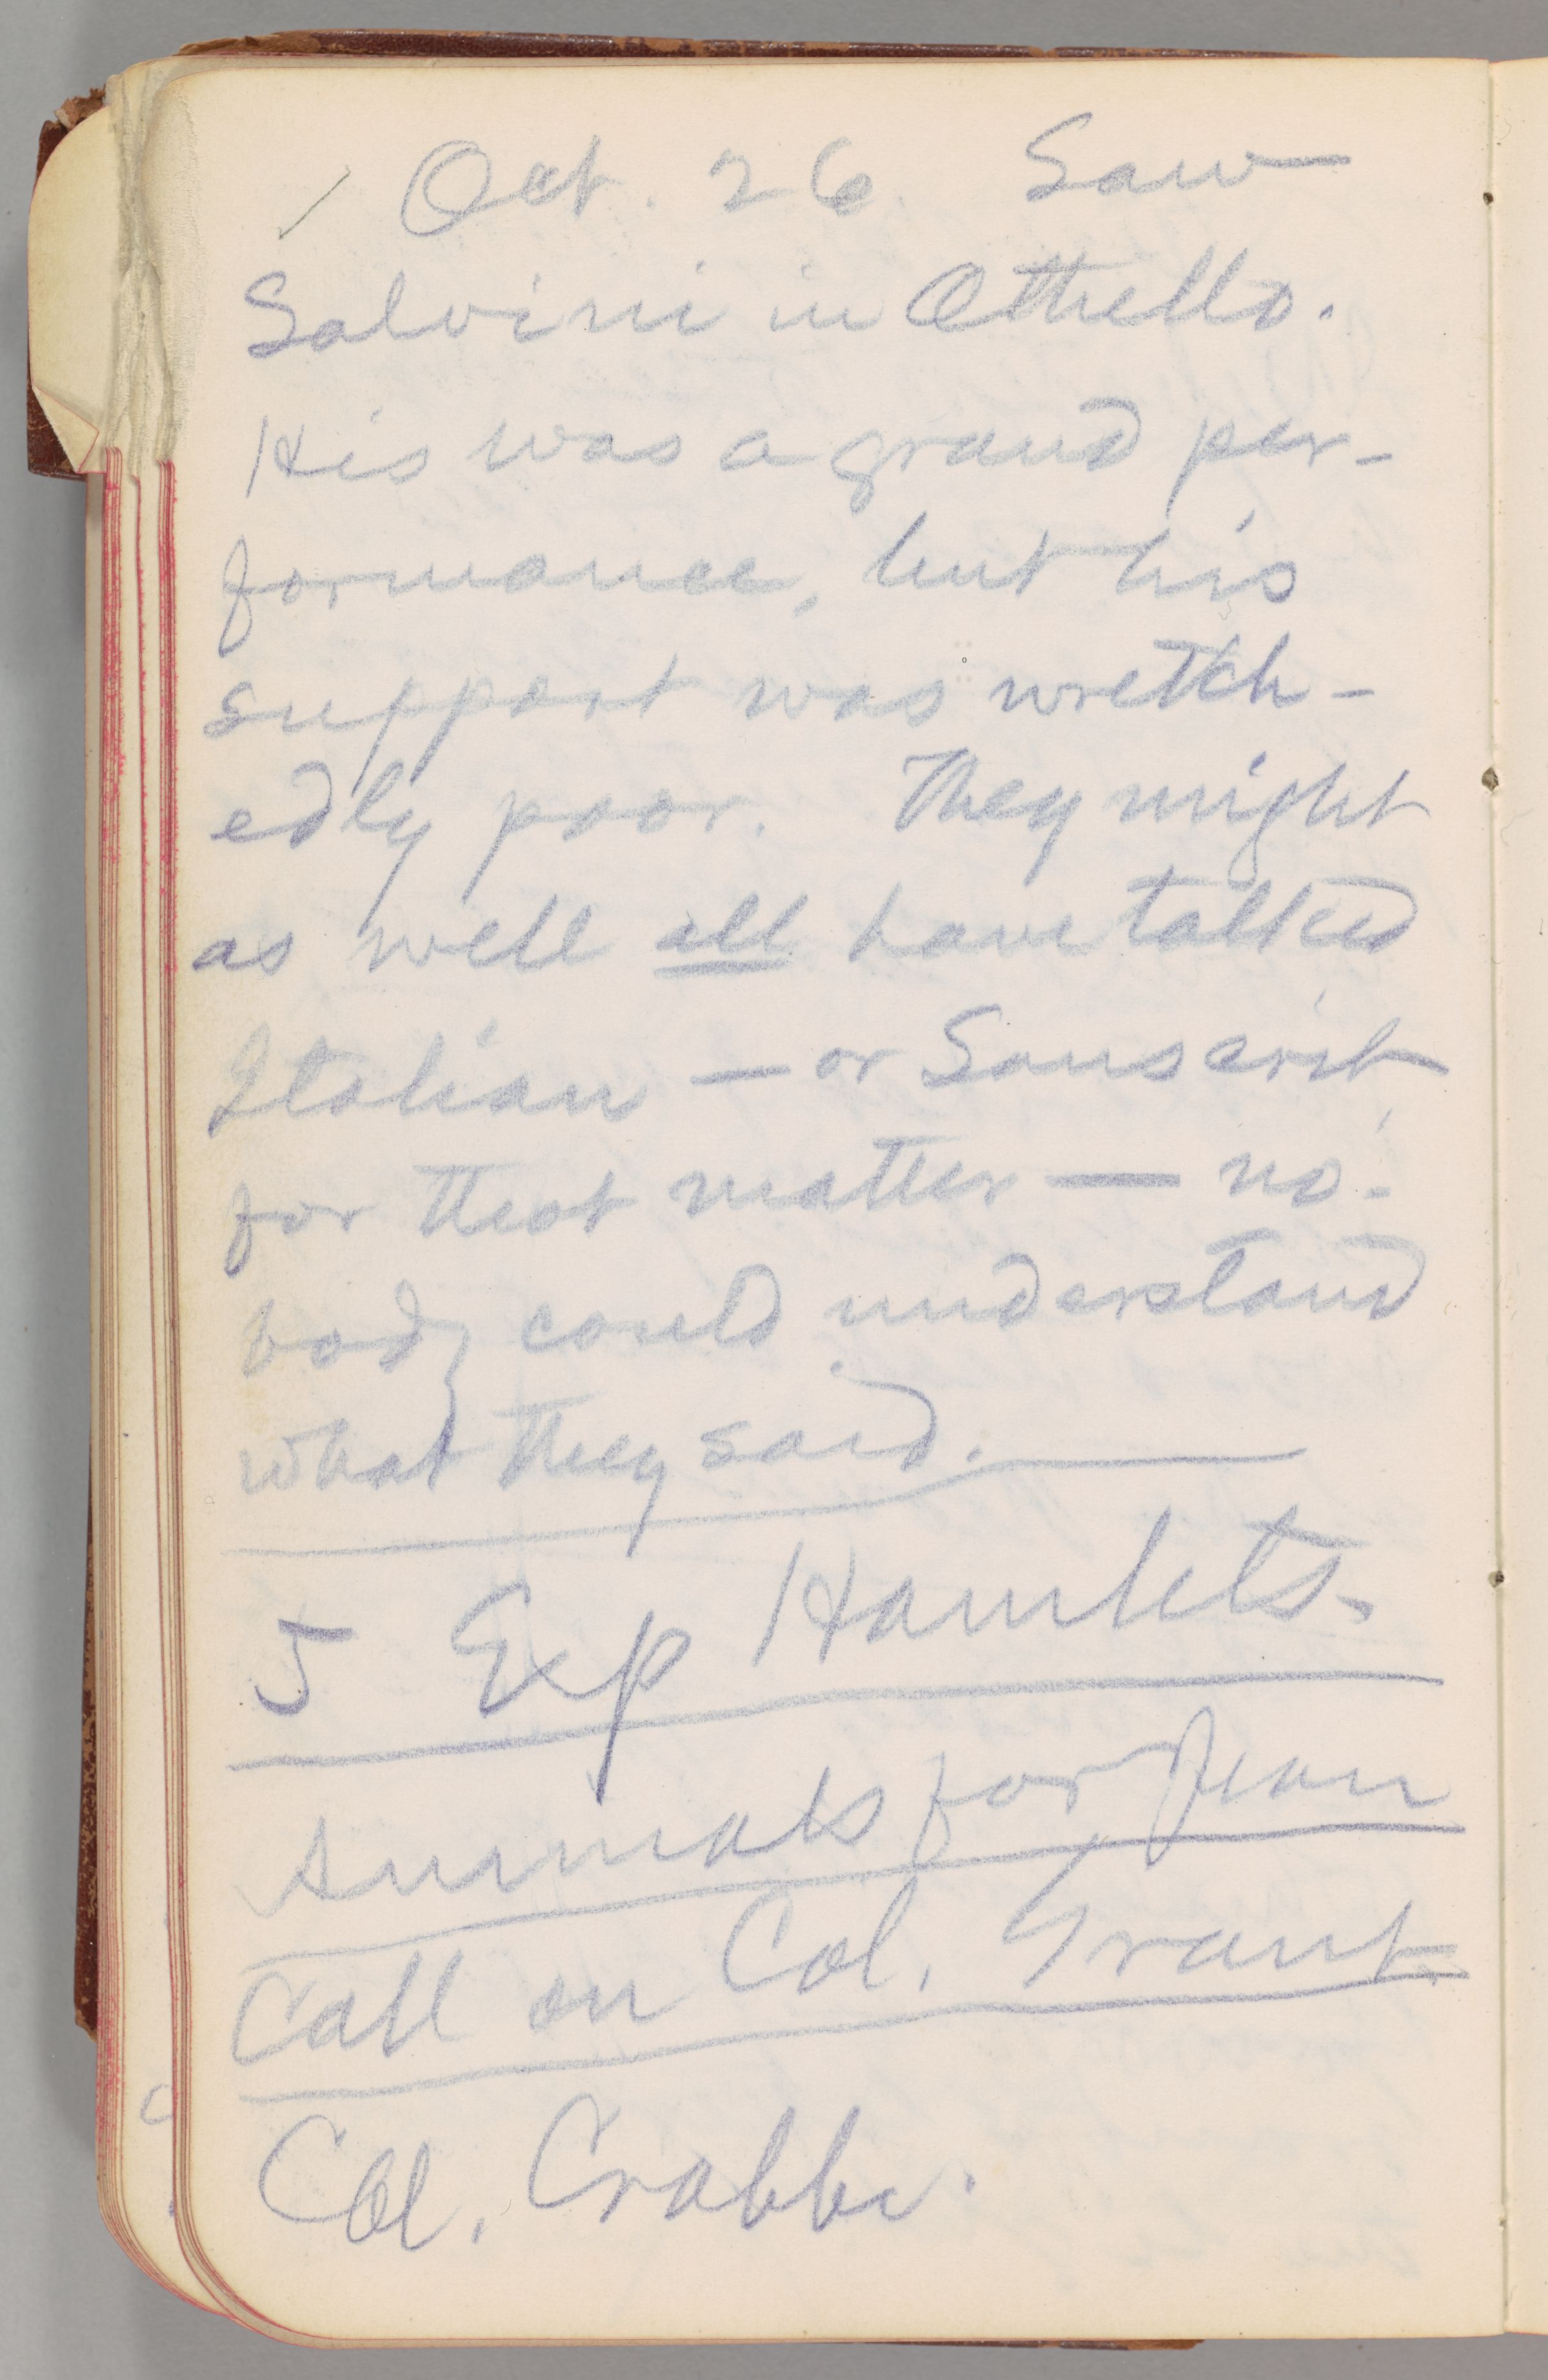 Oct. 26. Saw
Salvini in Othello.
His was a grand per-
formance, but his
support was wretch-
edly poor. They might
as well all have talked
Italian — or Sanscrit
for that matter — no-
body could understand
what they said.
5 Exp Hamlets.
Animals for Jean
Call on Col. Grant.
Col. Crabbe.